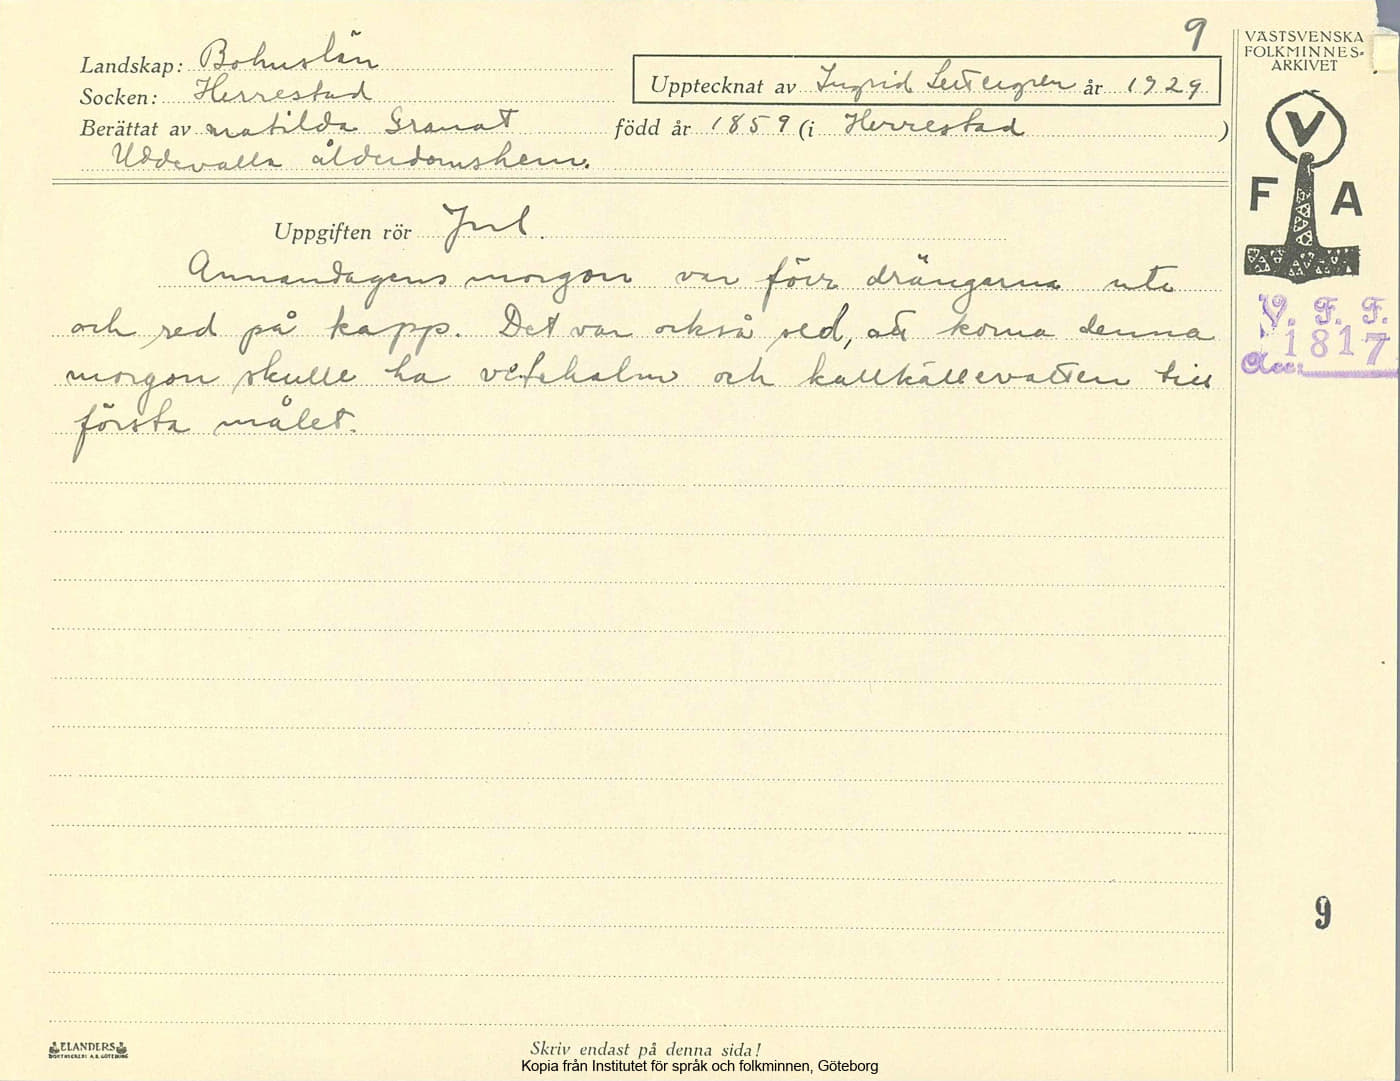 9
VÄSTSVENSKA
FOLKMINNES-
ARKIVET
Landskap: Bohuslän
Upptecknat av Ingrid år 1929
Socken: Herrestad
Berättat av Matilda Granat född år 1859 (i Herrestad)
Uddevalla ålderdomshem.
V
F A
Uppgiften rör Jul.
Annandagens morgon var förr drängarna ute
och red på kapp. Det var också sed, att korna denna
morgon skulle ha vetehalm och kallkällevatten till
första målet.
V. F. F.
1817
Acc:
9
ELANDERS
BOKTRYCKERI A.B. GÖTEBORG
Skriv endast på denna sida!
Kopia från Institutet för språk och folkminnen, Göteborg